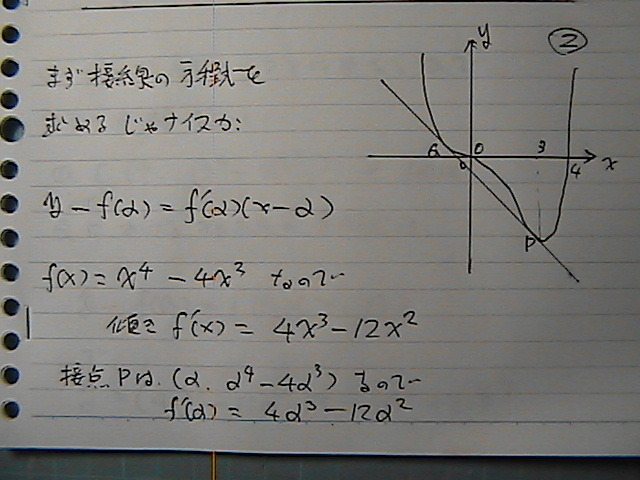 ②
まず接線の方程式を
求めるじゃナイスか:
y - f(α) = f'(α)(x - α)
f(x) = x⁴ - 4x³ なので
傾き f'(x) = 4x³ - 12x²
接点Pは (α, α⁴ - 4α³) なので
f'(α) = 4α³ - 12α²
y
Q O 3 4 x
P